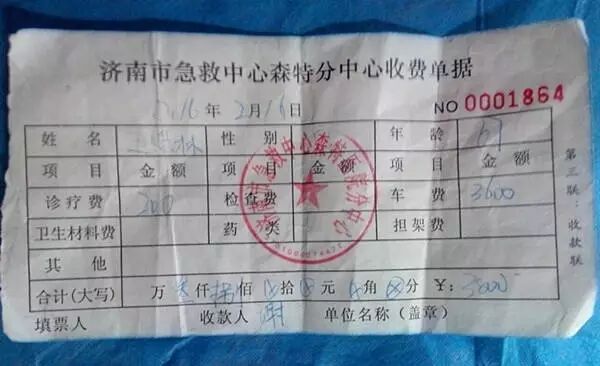 济南市急救中心森特分中心收费单据
2016年2月16日
NO 0001864
姓名 林 性别 年龄
项目 金额 项目 金额 项目 金额
诊疗费 200 检查费 车费 3600
卫生材料费 药类 担架费
其他
合计(大写) 万 仟 佰 拾 元 角 分 ¥:
填票人 收款人 谢 单位名称(盖章)
第三联:收款联